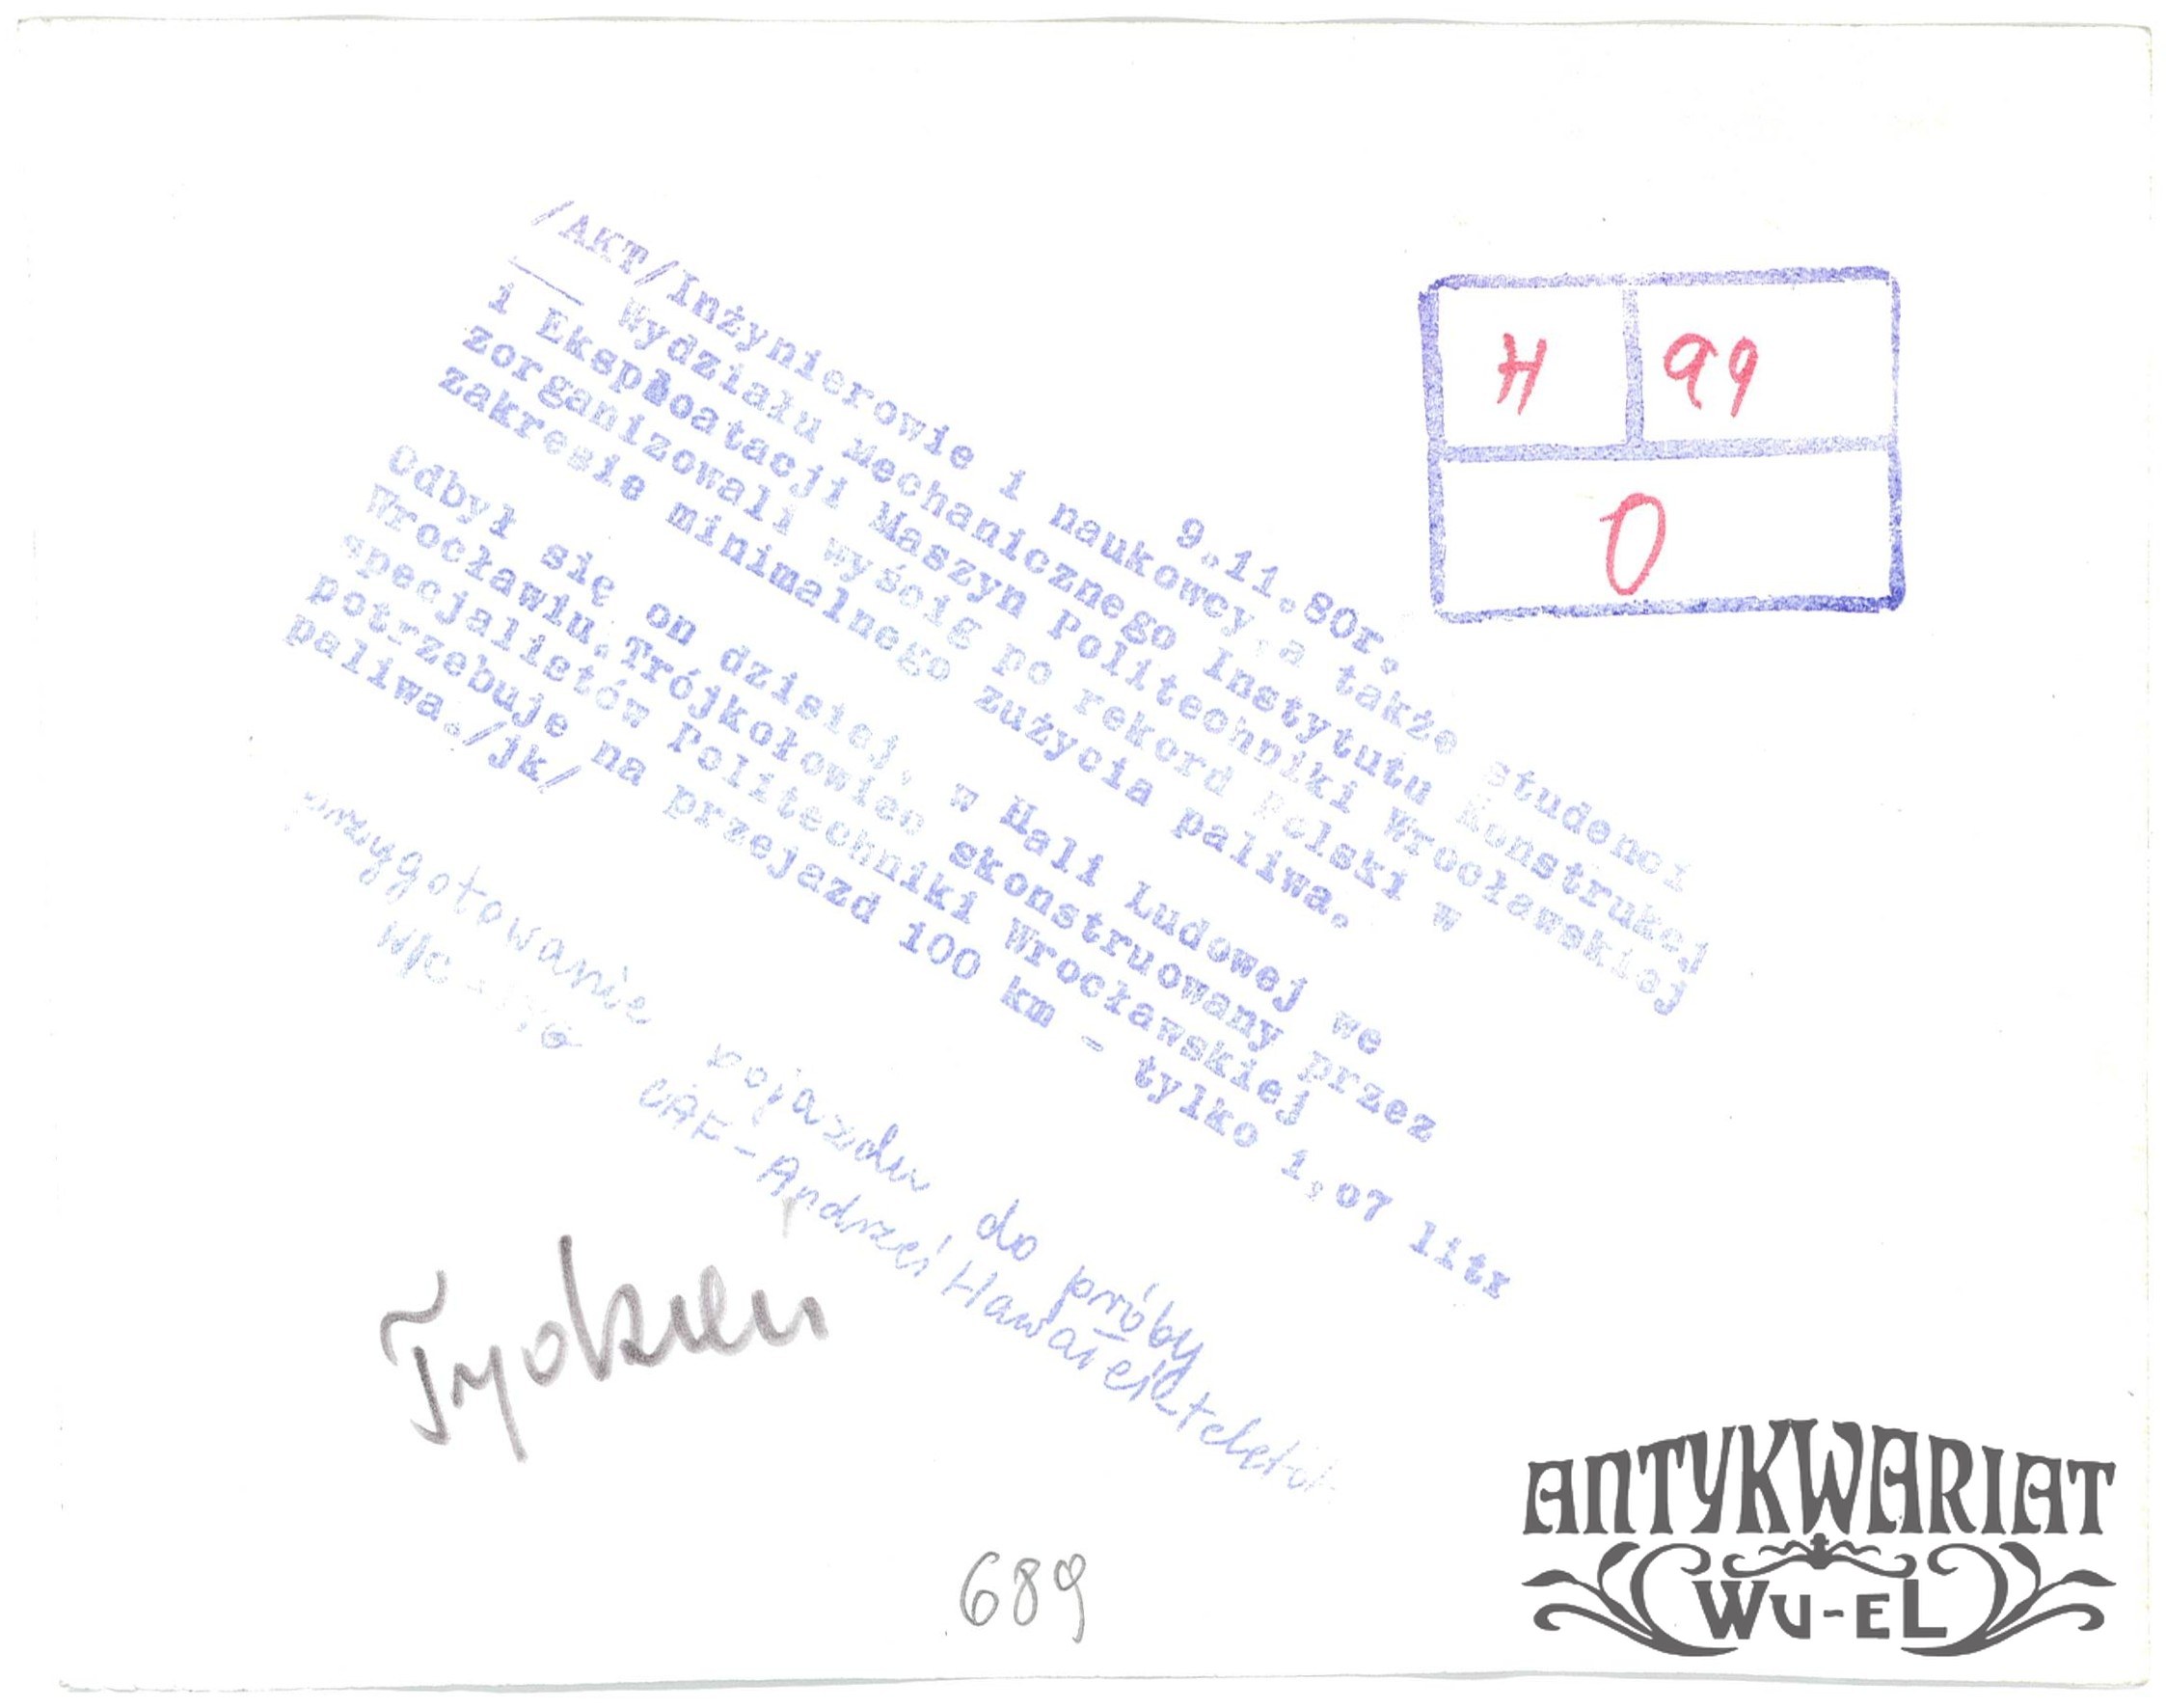 9.11.80r.
/AKT/Inżynierowie i naukowcy,a także studenci
Wydziału Mechanicznego Instytutu Konstrukcj
i Eksploatacji Maszyn Politechniki Wrocławskiej
zorganizowali wyścig po rekord Polski w
zakresie minimalnego zużycia paliwa.
Odbył się on dzisiaj, w Hali Ludowej we
Wrocławiu.Trójkołowiec skonstruowany przez
specjalistów Politechniki Wrocławskiej
potrzebuje na przejazd 100 km - tylko 1,07 litr
paliwa./jk/
przygotowanie pojazdu do próby
CAF-Andrzej Hawałej
H 99
0
689
ANTYKWARIAT
WU-EL